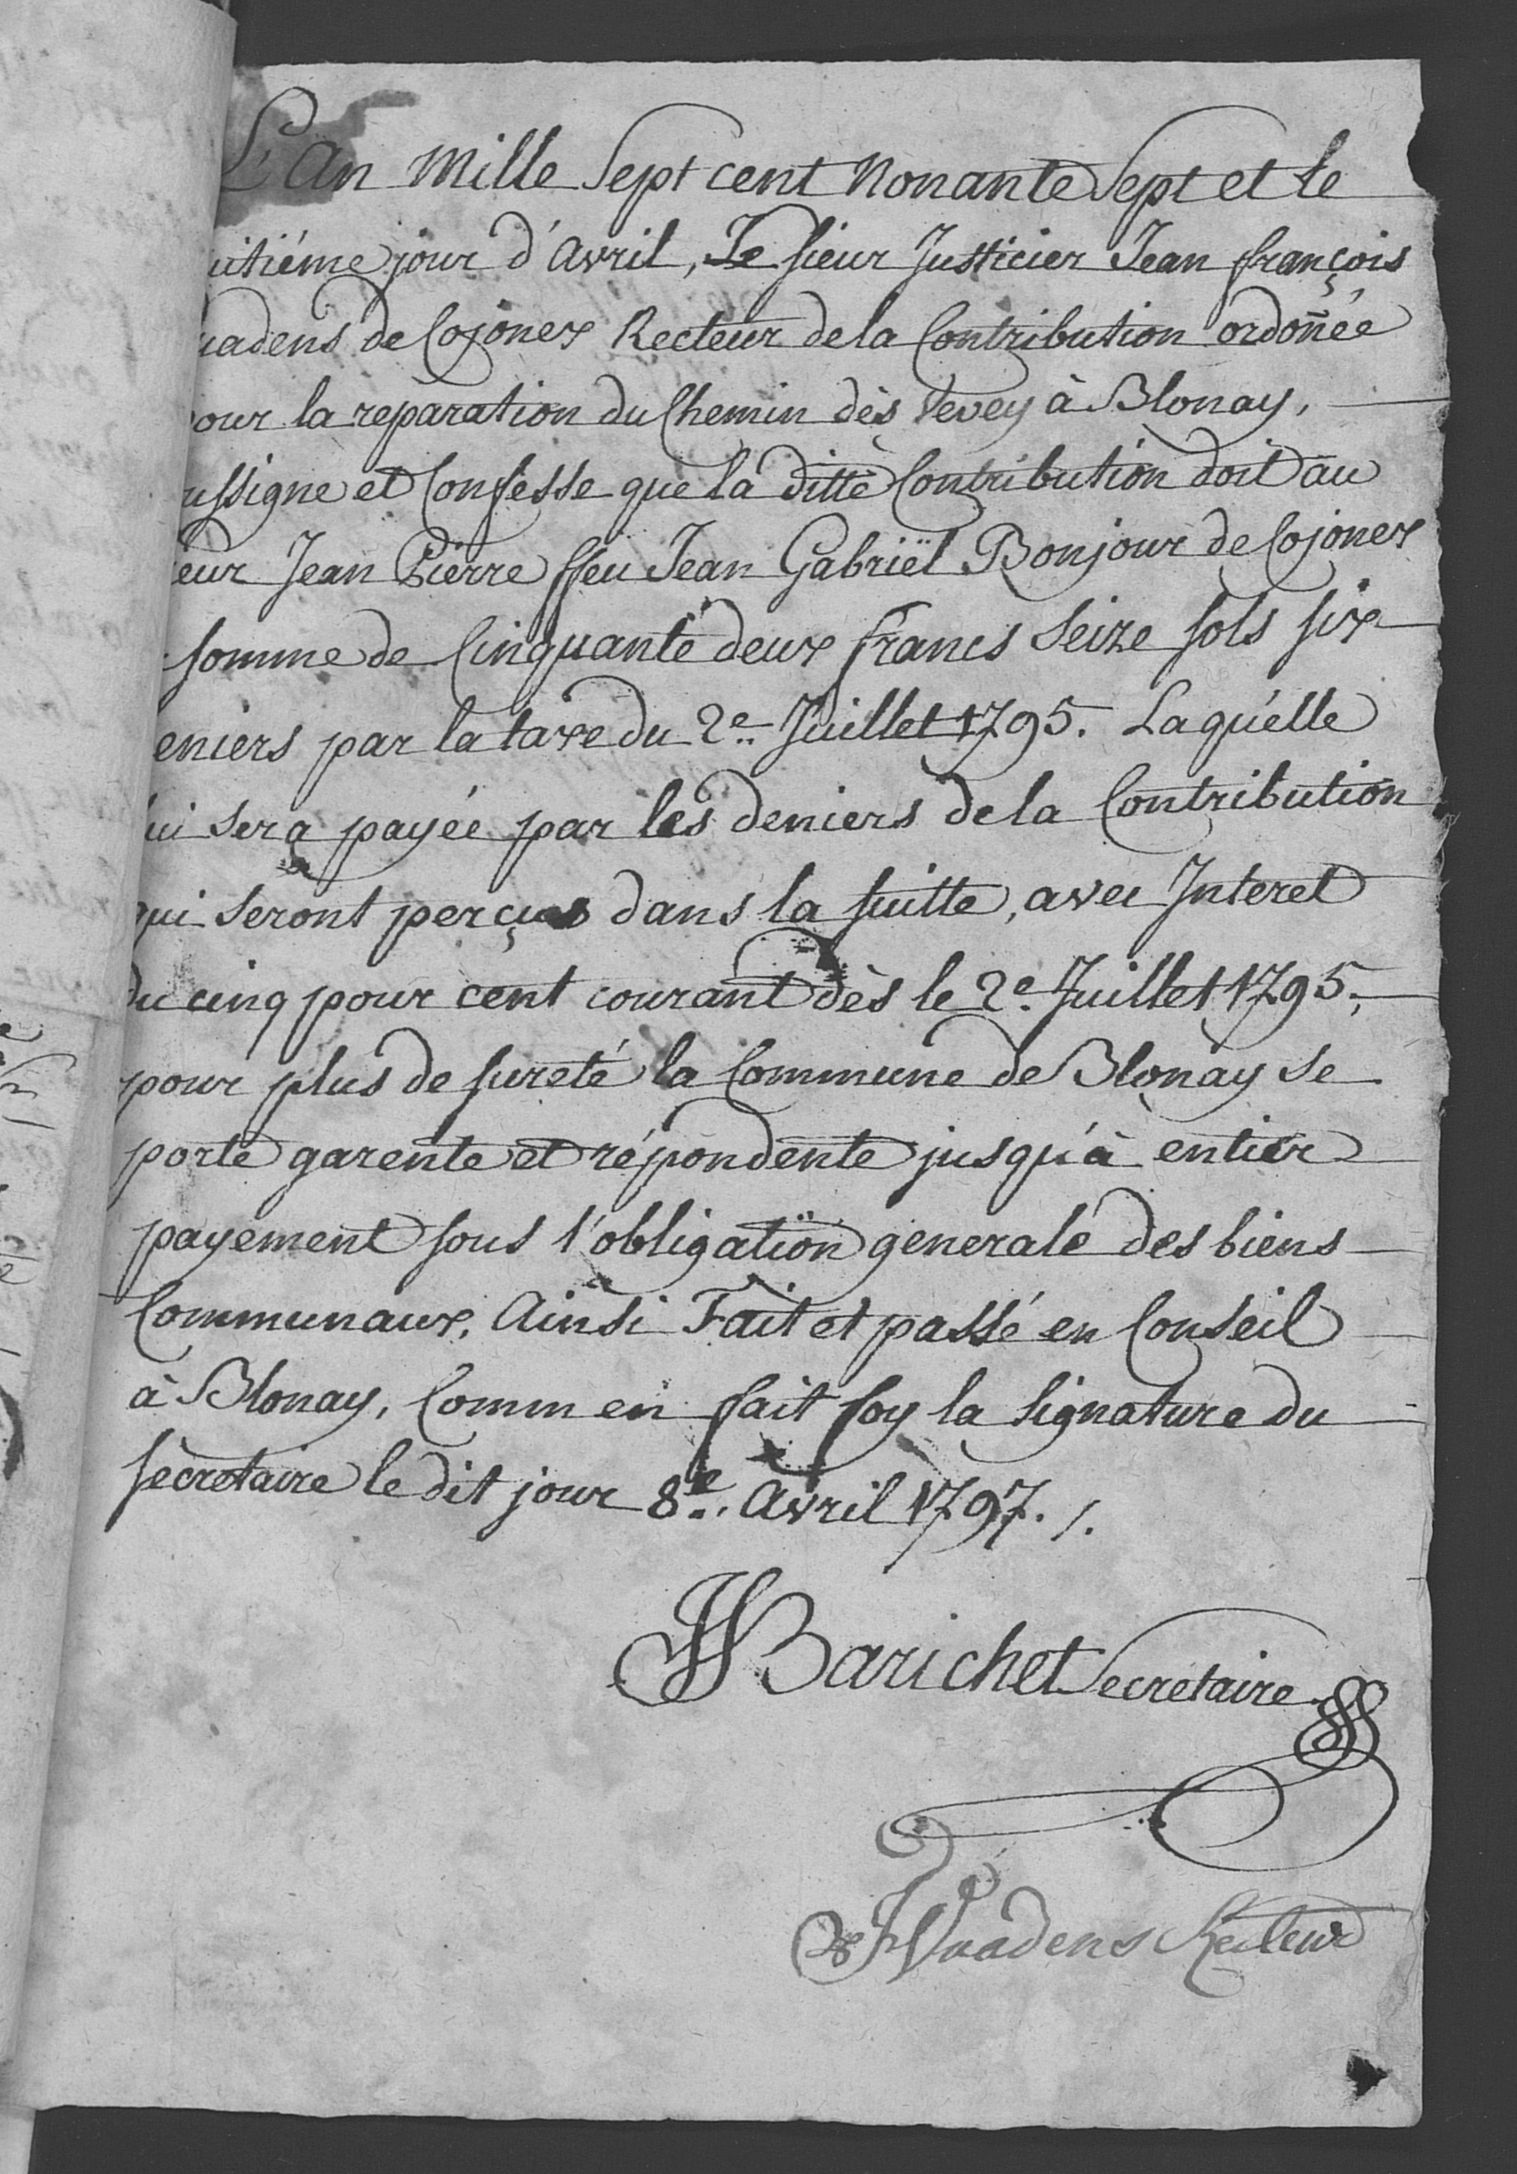 L'An Mille Sept cent Nonante Sept et le
uitiéme jour d'Avril, Le sieur Justicier Jean françois
uadens de Cojonex Recteur de la Contribution ordoñée
our la reparation du Chemin dès Vevey à Blonay,
ussigne et Confesse que la ditte Contribution doit au
ieur Jean Pierre ffeu Jean Gabriël Bonjour de Cojonex
somme de Cinquante deux francs Seize sols six
eniers par la taxe du 2e. Juillet 1795. Laquélle
lui sera payée par les deniers de la Contribution
qui seront perçus dans la suitte, avec Interet
du cinq pour cent courant dès le 2e. Juillet 1795,
pour plus de sureté la Commune de Blonay se
porte garente et répondente jusqu'à entier
payement sous l'obligation generale des biens
Communaux, Ainsi Fait et passé en Conseil
à Blonay, Comm en fait foy la signature du
secretaire le dit jour 8e. Avril 1797. /.
Barichet Secretaire
Vuadens Recteur